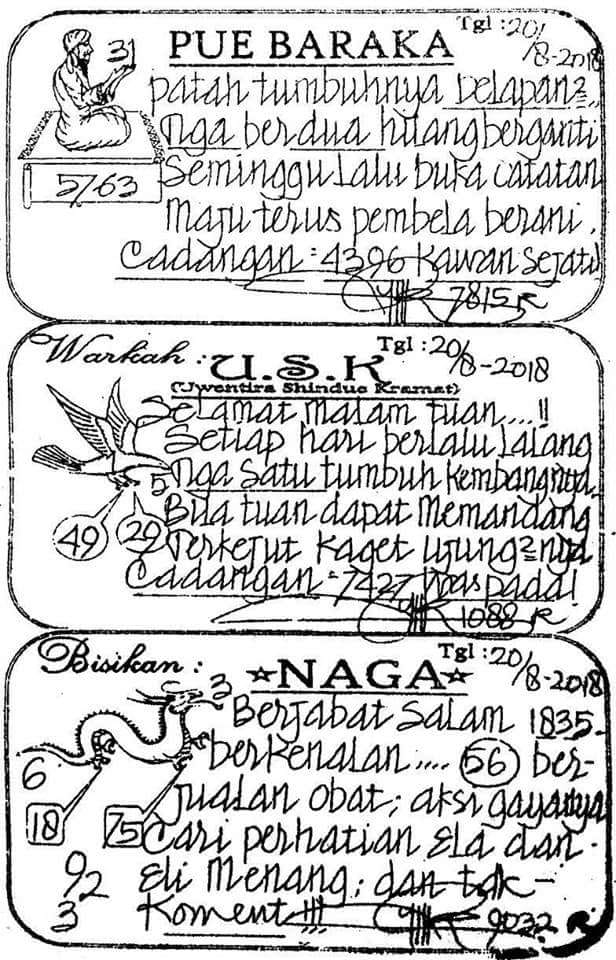 PUE BARAKA
Tgl : 20/
/8-2018
31
57-63
patah tumbuhnya delapan2..
Nga berdua hilang berganti
Seminggu lalu buka catatan
Maju terus pembela berani.
Cadangan = 4396 Kawan Sejati!
7815 R
Warkah : U.S.K
Tgl : 20/8-2018
(Uwentira Shindue Kramat)
Selamat malam tuan....!!
Setiap hari berlalu lalang
5 Nga satu tumbuh kembangnya
49
29
Bila tuan dapat memandang
Terkejut kaget ujung2nya
Cadangan = 7427 Waspada!
1088 R
Bisikan : ☆NAGA☆
Tgl : 20/8-2018
3
Berjabat Salam 1835
berkenalan.... 56 ber-
6
18
75
jualan obat; aksi gayanya
Cari perhatian Ela dan
92
Eli Menang; dan tak-
3
Koment!!!
9032 R